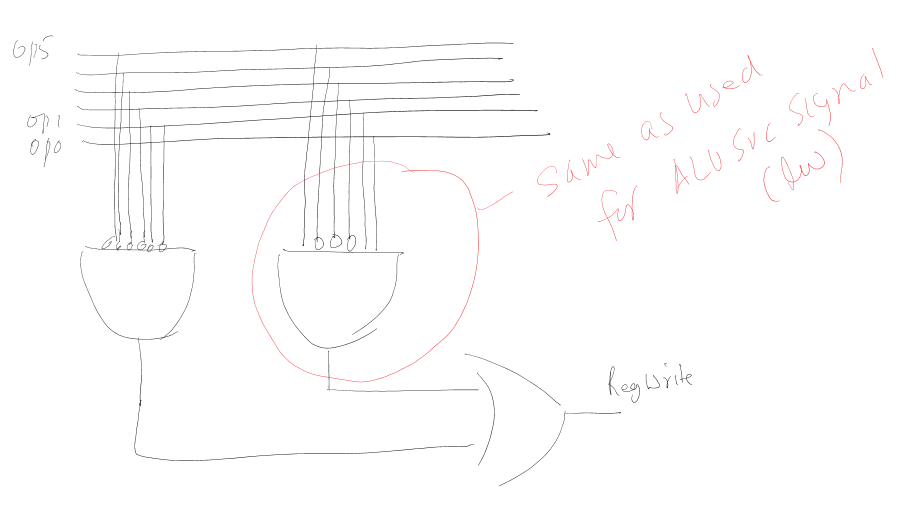 op5
op1
op0
same as used
for ALUSrc signal
(lw)
RegWrite